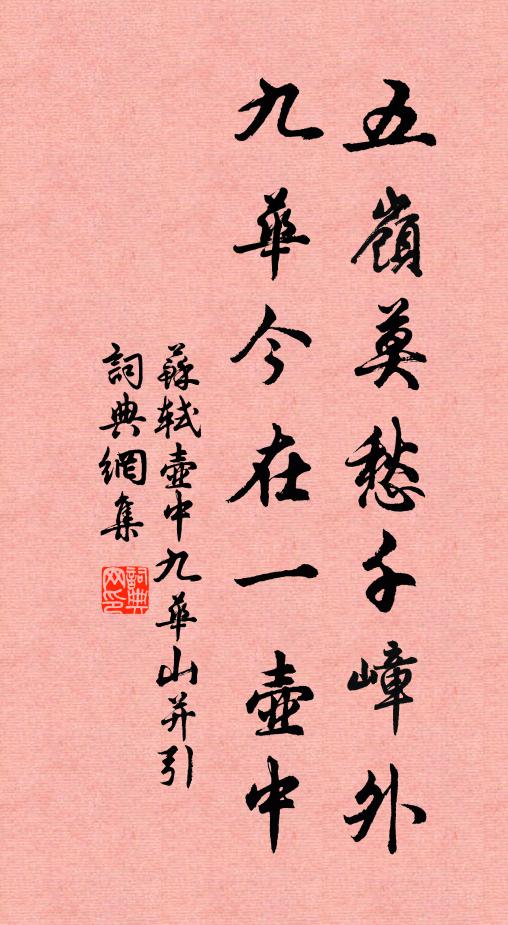 五嶺莫愁千嶂外
九華今在一壺中
蘇軾壺中九華山并引
詞典網集
詞典网印